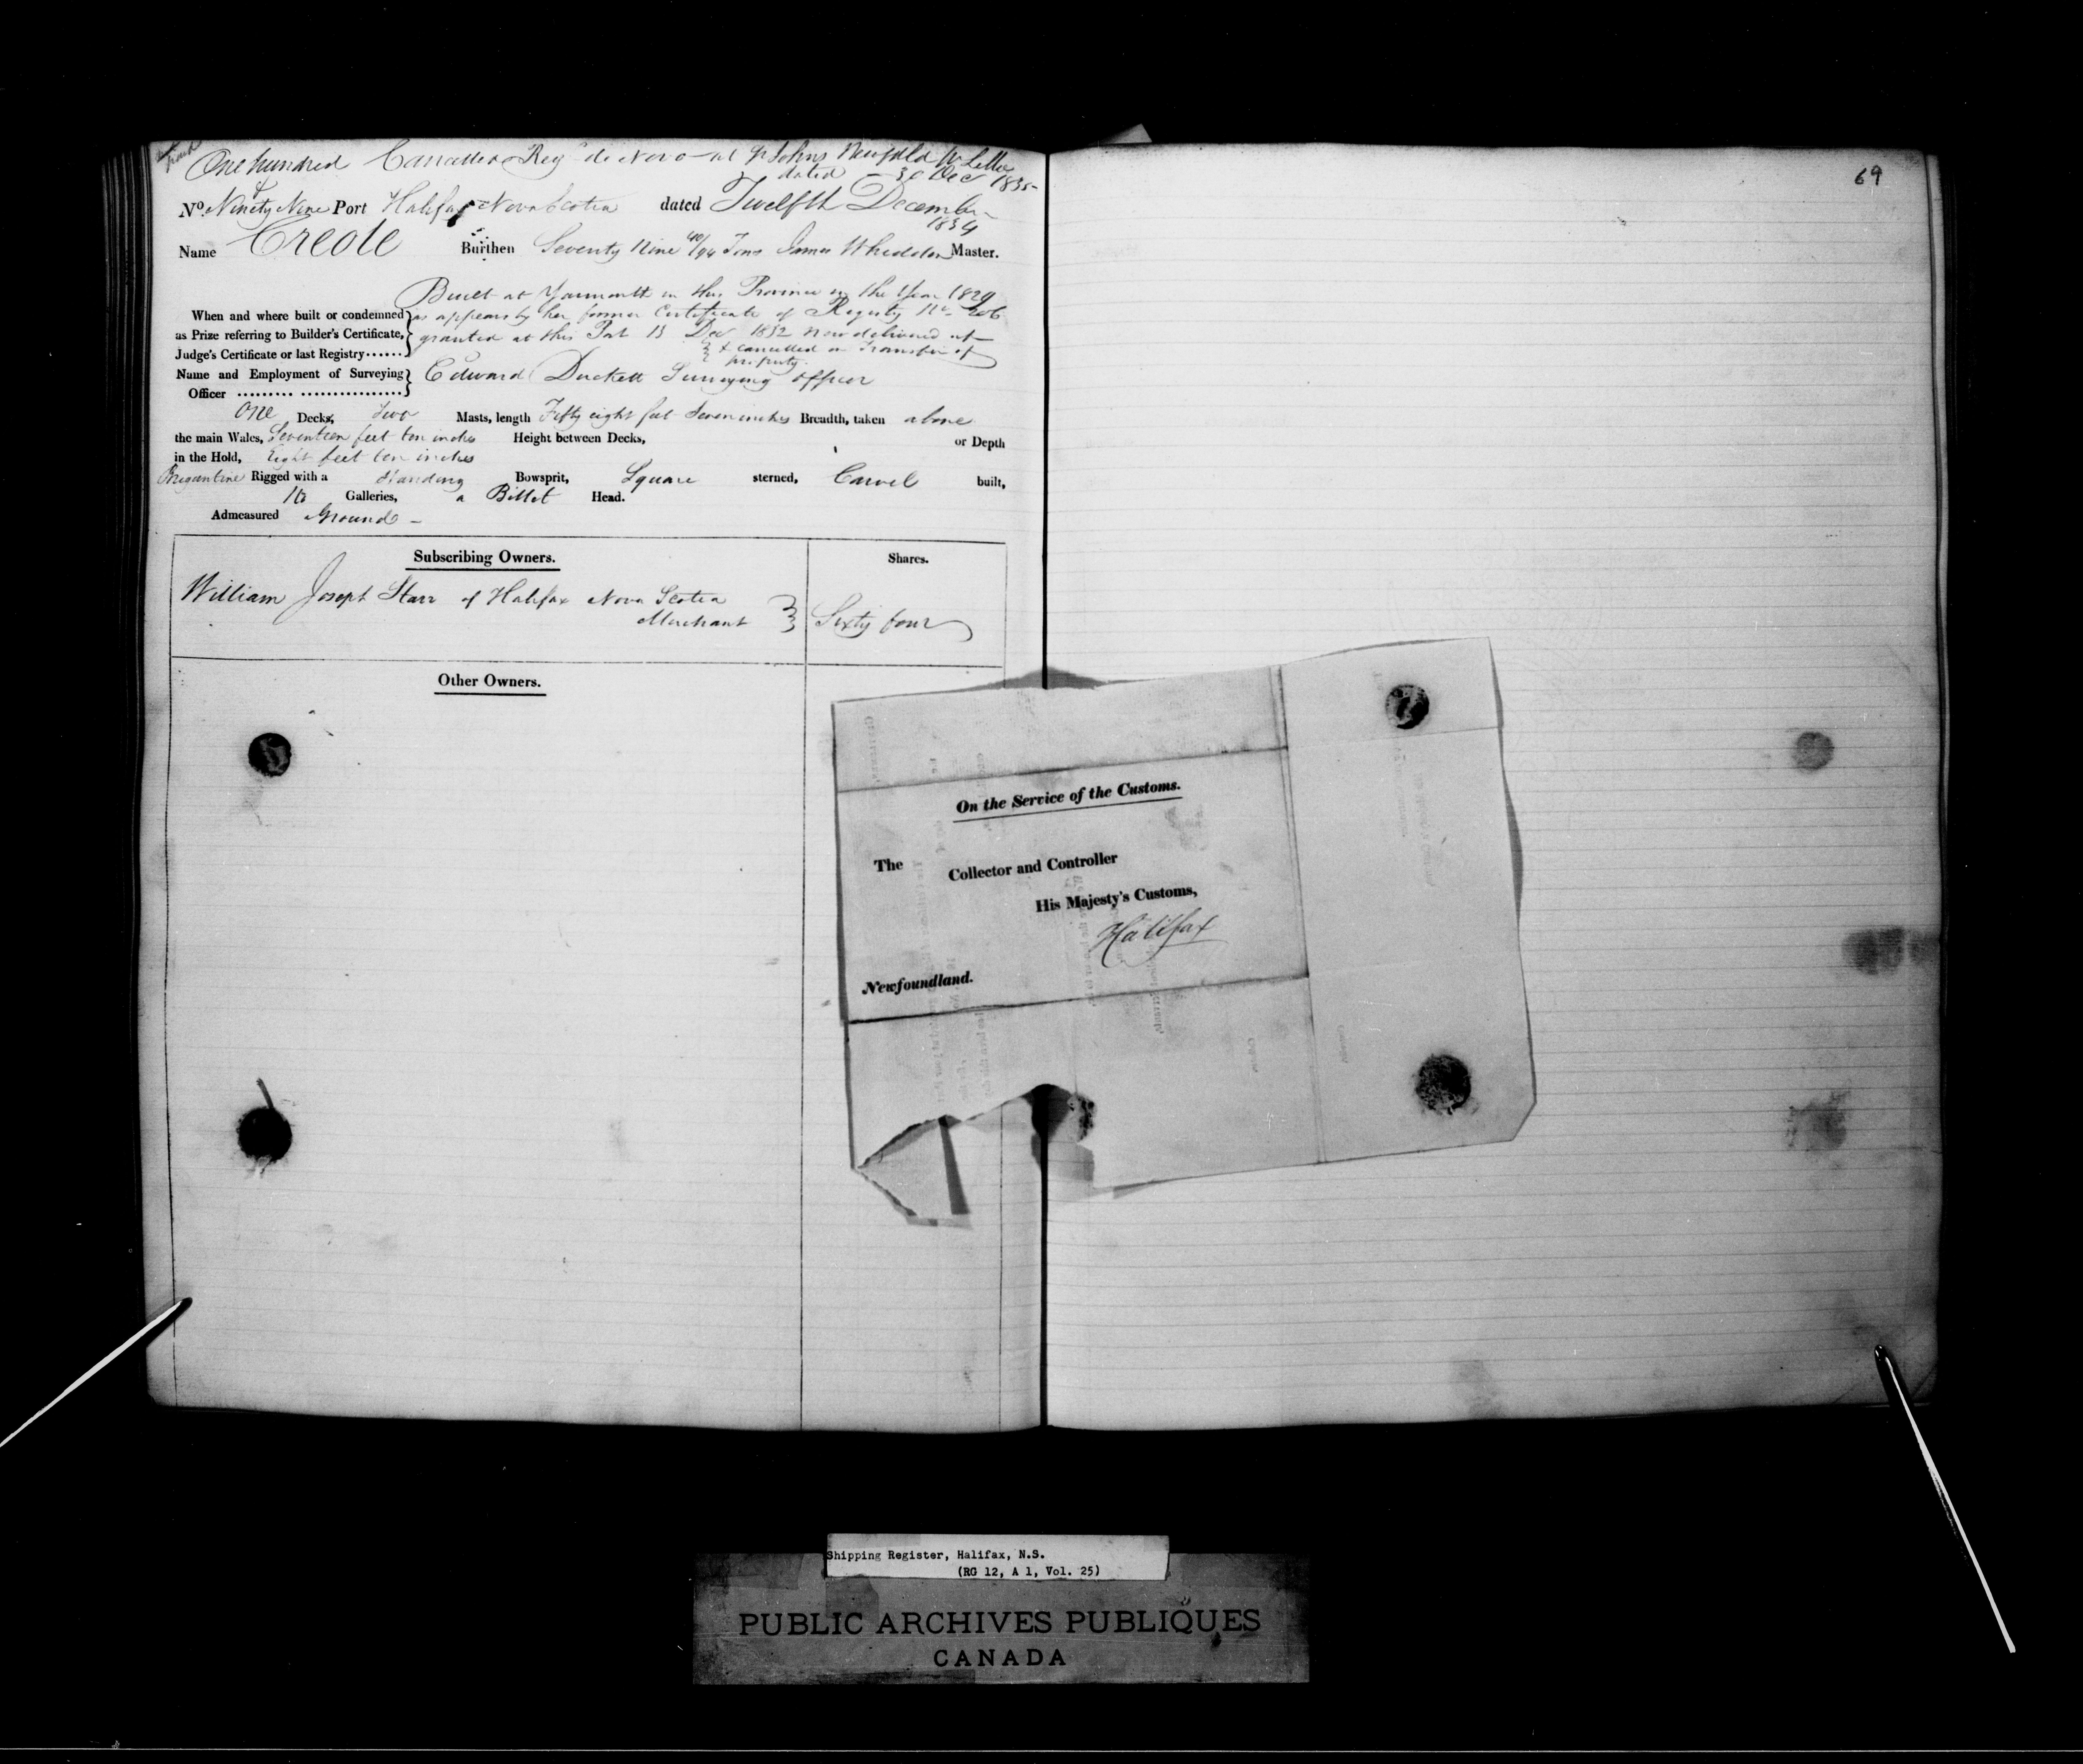 One hundred Cancelled Reg de Novo at St Johns Newfdld pr Letter
dated 30 Dec 1835
&
No. Ninety Nine Port Halifax Nova Scotia dated Twelfth December
1834
Name Creole Burthen Seventy Nine 40/94 Tons James Wheddon Master.
Built at Yarmouth in this Province in the Year 1829
When and where built or condemned as appears by her former Certificate of Registry No. 206
as Prize referring to Builder's Certificate, granted at this Port 13 Dec 1832 now delivered up
Judge's Certificate or last Registry...... & cancelled on Transfer of
property.
Name and Employment of Surveying Edward Duckett Surveying Officer
Officer
One Decks, Two Masts, length Fifty eight feet Seven inches Breadth, taken above
the main Wales, Seventeen feet ten inches Height between Decks, or Depth
in the Hold, Eight feet ten inches
Brigantine Rigged with a Standing Bowsprit, Square sterned, Carvel built,
No Galleries, a Billet Head.
Admeasured Ground
Subscribing Owners. Shares.
William Joseph Starr of Halifax Nova Scotia
Merchant Sixty four
Other Owners.
69
On the Service of the Customs.
The Collector and Controller
His Majesty's Customs,
Halifax
Newfoundland.
Shipping Register, Halifax, N.S.
(RG 12, A 1, Vol. 25)
PUBLIC ARCHIVES PUBLIQUES
CANADA